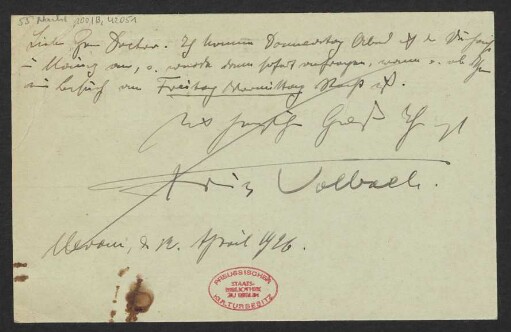 55 Nachl. 100/B, 42051
Lieber Herr Doctor. Ich komme Donnerstag Abend
in Mainz an, u. werde dann sofort anfragen, wann u. ob Ihnen
ein Besuch am Freitag Vormittag ist.
Mit Gruß Ihr
Fritz Volbach.
Meran, d. 12. April 1926.
PREUSSISCHER
STAATS-
BIBLIOTHEK
ZU BERLIN
KULTURBESITZ